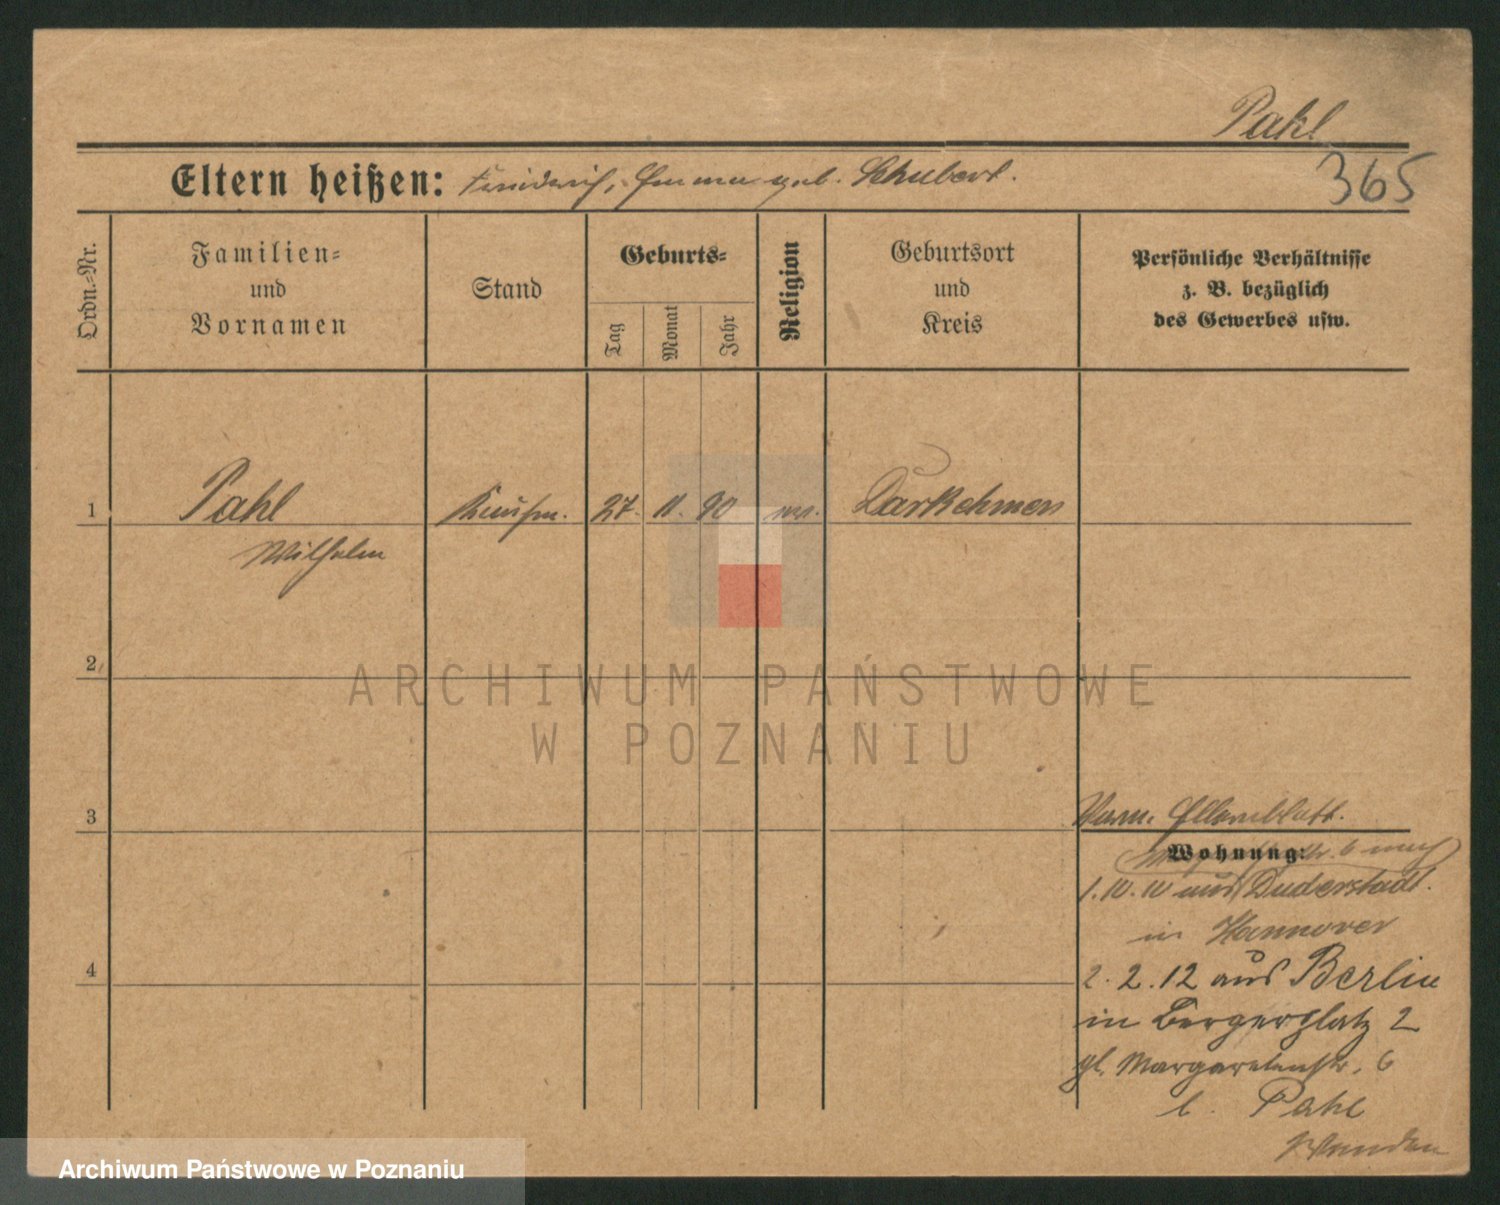 Pahl
Eltern heißen: Friedrich, Emma geb. Schubert.
365
Ordn.=Nr.
Familien=
und
Vornamen
Stand
Geburts=
Tag
Monat
Jahr
Religion
Geburtsort
und
Kreis
Persönliche Verhältnisse
z. B. bezüglich
des Gewerbes usw.
1
Pahl
Kaufm. 27. 11. 90 ev. Darkehmen
Wilhelm
2
3
4
Vorm. Elternblatt.
Wohnung:
str. 6 nach
1.10.10 aus Duderstadt.
in Hannover
2.2.12 aus Berlin
in Bergerplatz 2
gl. Margaretenstr. 6
b. Pahl
ARCHIWUM PAŃSTWOWE
W POZNANIU
Archiwum Państwowe w Poznaniu